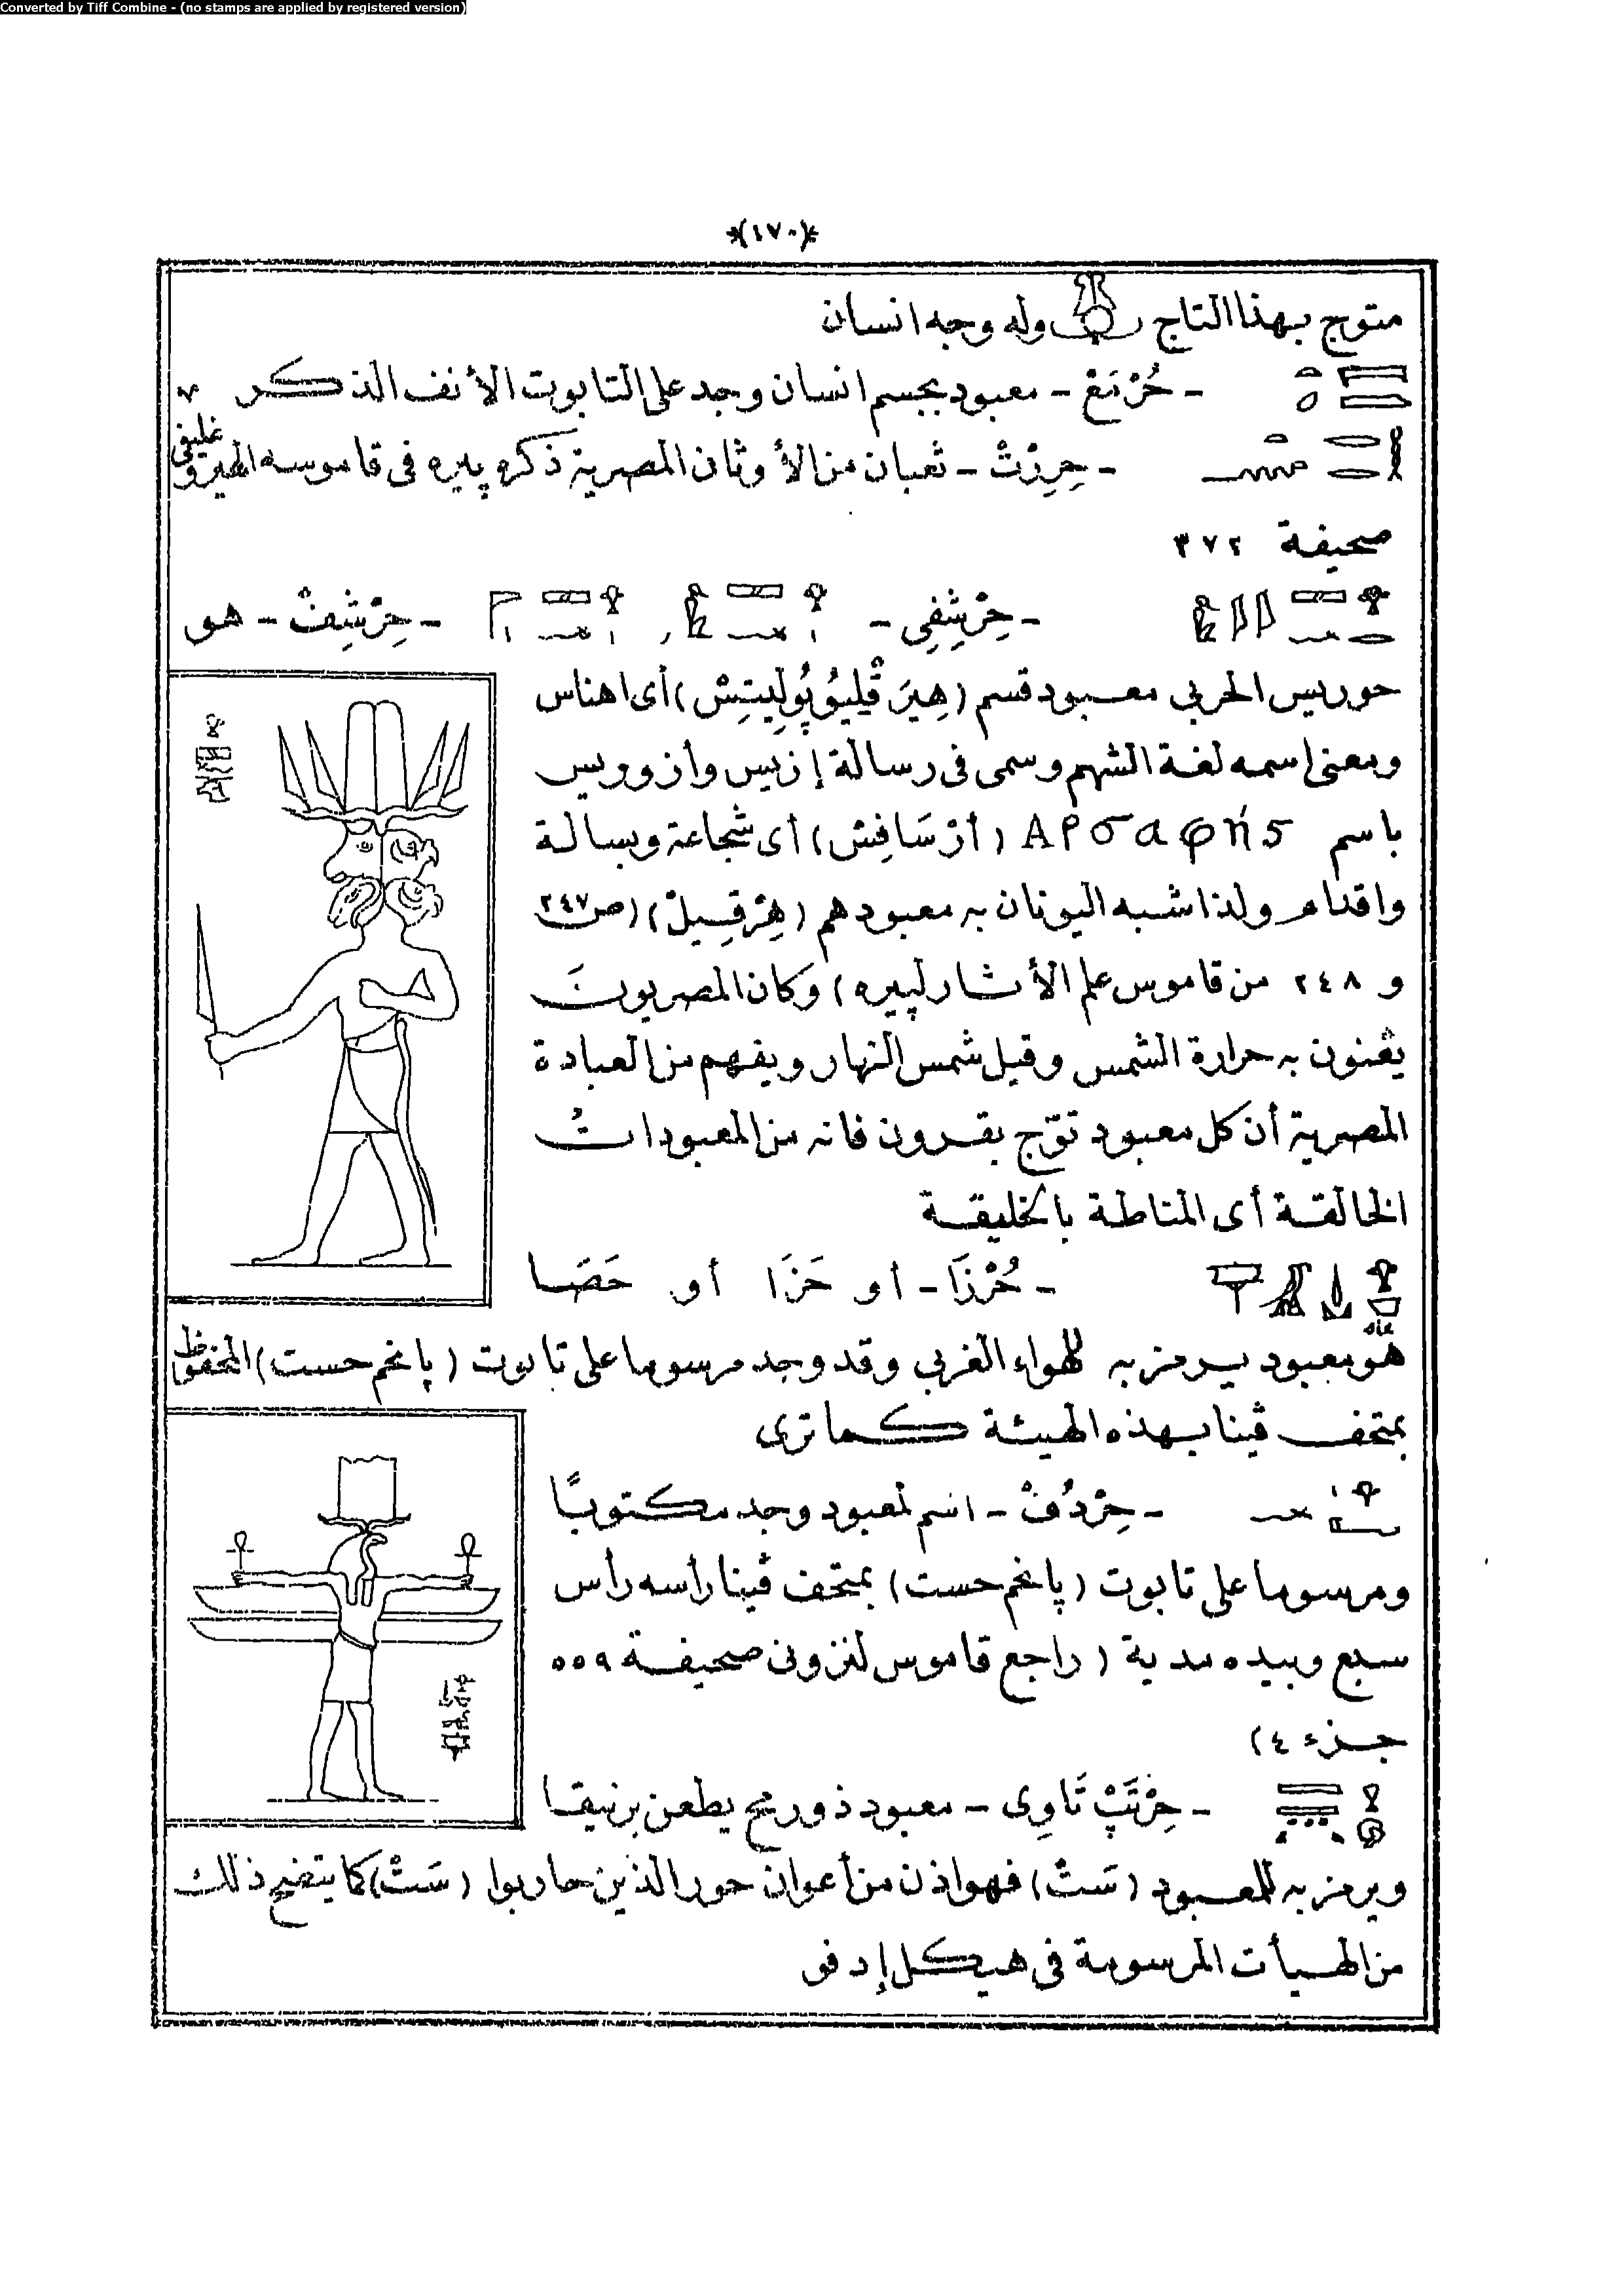 Converted by Tiff Combine - (no stamps are applied by registered version)
*(١٧٠)*
متوج بهذا التاج وله وجه انسان
- معبود بجسم انسان وجد على التابوت الأنف الذكر
- حِرِرْتْ - ثعبان من الأوثان المصرية ذكره پيره فى قاموسه الهيروغليفى
صحيفة ٣٧٢
- حِرْشِفِى - - حِرْشِفْ - هو
حوريس الحربى معبود قسم (هِيرَ قْلِيُوُپُولِيتِسْ) أى اهناس
ومعنى اسمه لغة الشهم وسمى فى رسالة إزيس وأزوريس
باسم Αρσαφής (أرْسَافِسْ) أى شجاعة وبسالة
واقدام ولذا شبه اليونان به معبودهم (هِرْقِيلْ) (ص ٢٤٧
و ٢٤٨ من قاموس علم الأثار لپيره) وكان المصريون
يعنون به حرارة الشمس وقيل شمس النهار ويفهم من العبادة
المصرية أن كل معبود توّج بقرون فانه من المعبودات
الخالقة أى المناطة بالخليقة
- حُرْزَا - أو حَزَا أو حَصَا
هو معبود يرمز به للهواء الغربى وقد وجد مرسوما على تابوت (پانحم حست) المحفوظ
بمتحف ڤينا بهذه الهيئة كما ترى
- حِرْدُفْ - اسم لمعبود وجد مكتوبًا
ومرسوما على تابوت (پانحم حست) بمتحف ڤينا رأسه رأس
سبع وبيده مدية (راجع قاموس لنزونى صحيفة ٥٥٩
جزء ٤)
- حِرْتَپْ تَاوِى - معبود ذو رمح يطعن برنيقا
ويرمز به للمعبود (سَتْ) فهو اذن من أعوان حور الذين حاربوا (سَتْ) كما يتضح ذلك
من الهيأت المرسومة فى هيكل إدفو